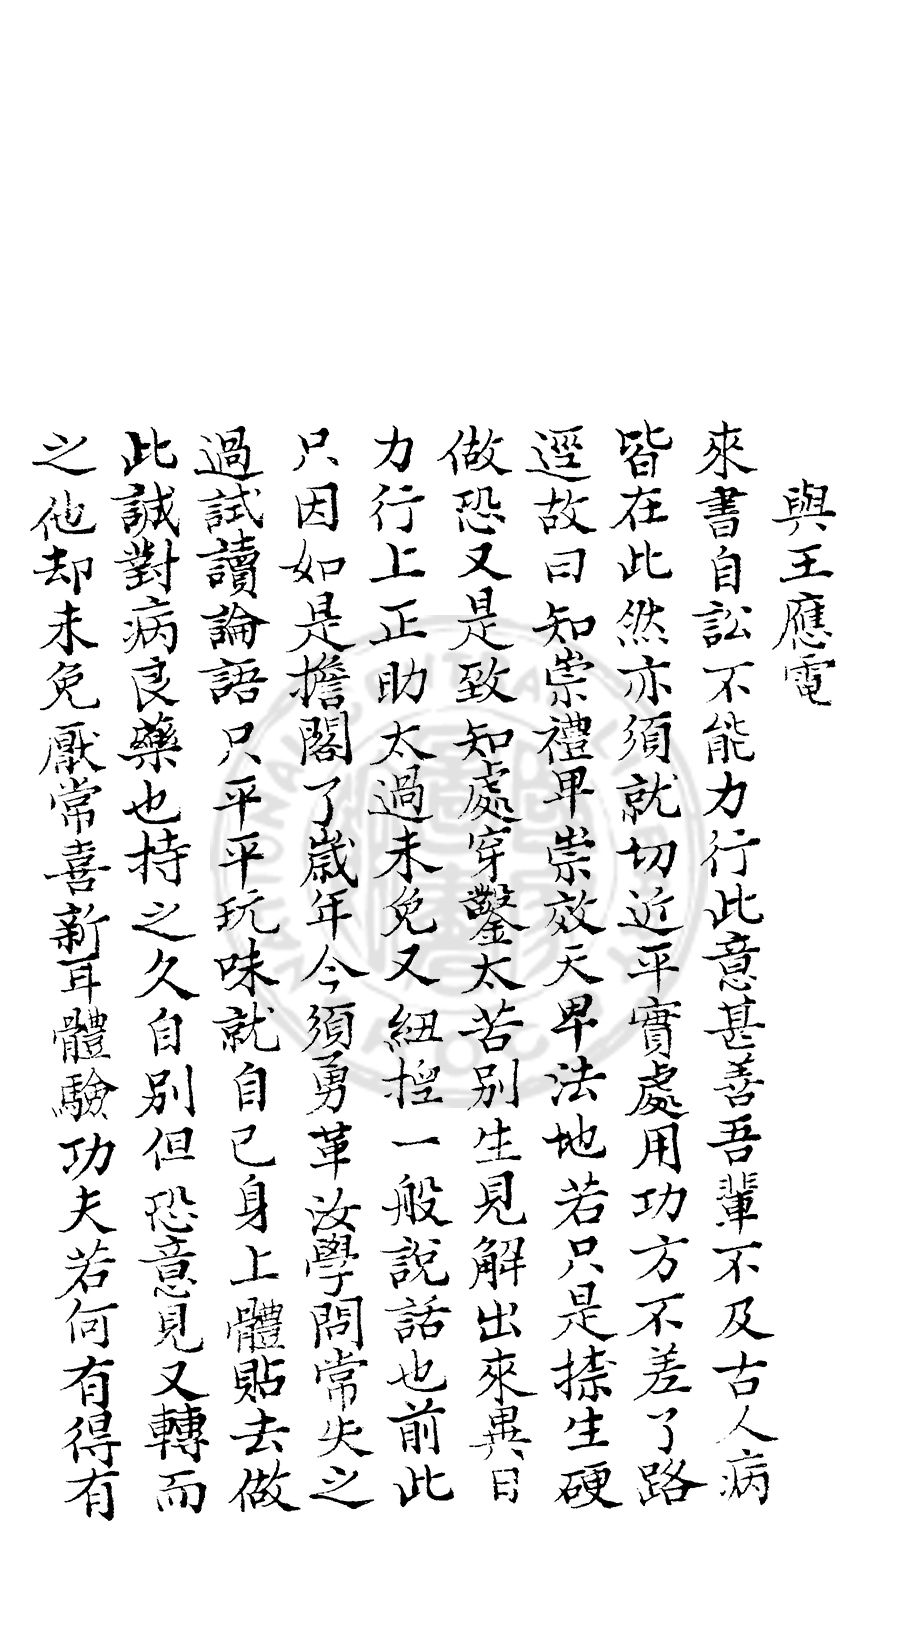 與王應電
來書自訟不能力行此意甚善吾輩不及古人病
皆在此然亦須就切近平實處用功方不差了路
逕故曰知崇禮卑崇效天卑法地若只是捺生硬
做恐又是致知處穿鑿太苦別生見解出來異日
力行上正助太過未免又紐揑一般說話也前此
只因如是擔閣了歲年今須勇革汝學問常失之
過試讀論語只平平玩味就自己身上體貼去做
此誠對病良藥也持之久自別但恐意見又轉而
之他却未免厭常喜新耳體驗功夫若何有得有